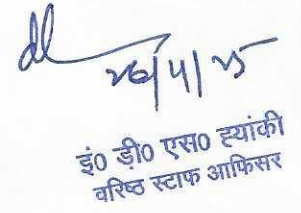 26/4/25
इं0 डी0 एस0 ह्यांकी
वरिष्ठ स्टाफ आफिसर